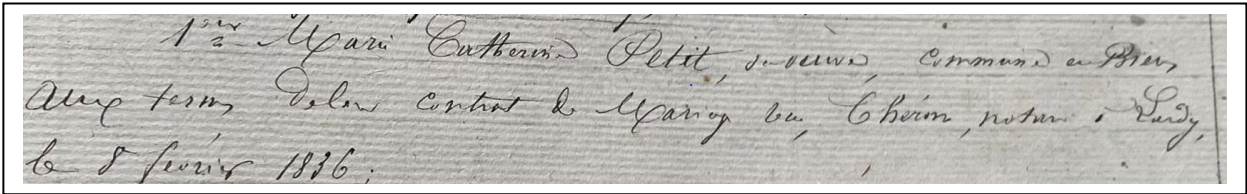 1ent Marie Catherine Petit, sa veuve, commune en Biens
aux termes de leur contrat de Mariage vu, Chéron, notaire à Lardy,
le 8 février 1836;